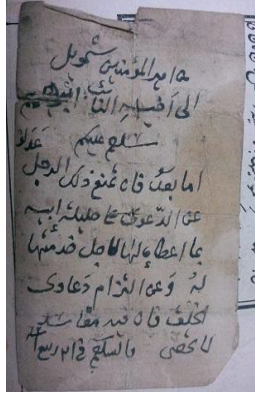 من امير المؤمنين شمويل
الى أخيه
سلام عليكم
اما بعد فانه تمنع ذلك الرجل
عن الدعوى على حليلة ابيه
بما اعطاه لها لاجل خدمتها
له وعن التزام دعاوى
الحلف فان فيه مفاسد
لا تحصى والسلام في ٢١ ربيع